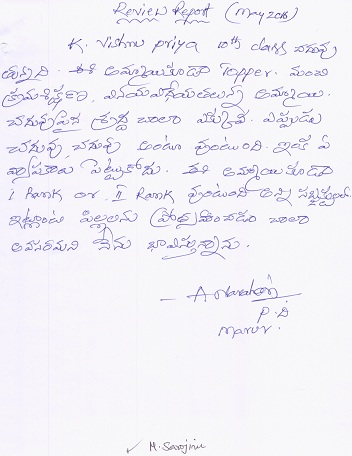 Review Report (May 2018)
K. Vishnu priya 10th class చదువు
తున్నది. ఈ అమ్మాయికూడా Topper. మంచి
క్రమశిక్షణ, వినయవిధేయతలున్న అమ్మాయి.
చదువుపైన శ్రద్ధ చాలా ఎక్కువ. ఎప్పుడు
చదువు చదువు అంటూ వుంటుంది. ఇతర
పెట్టుకోదు. ఈ అమ్మాయికూడా
I Rank or II Rank వుంటుంది అన్ని
ఇట్లాంటి పిల్లలను ప్రోత్సహించడం చాలా
అవసరమని నేను భావిస్తున్నాను.
P.D
Marur.
✓ M. Sarojini